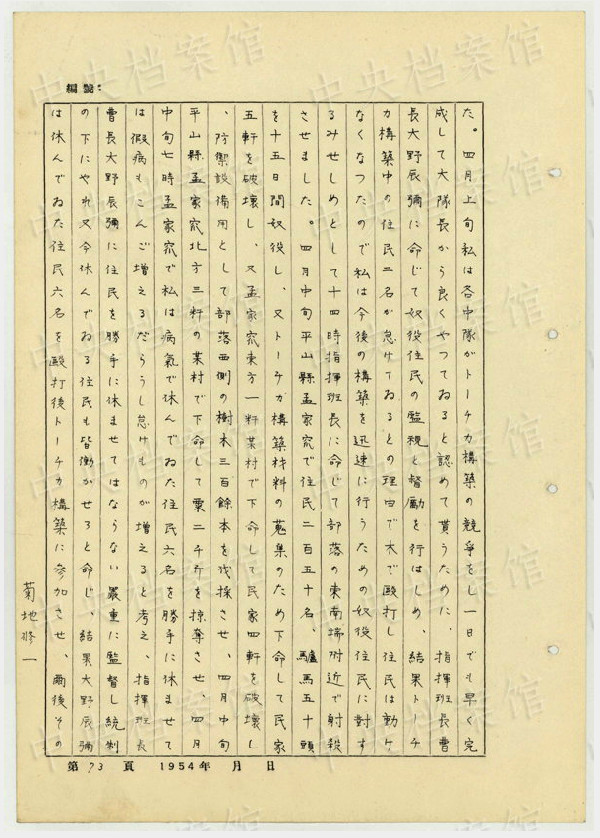 編號：
た。四月上旬私は各中隊がトーチカ構築の競争をし一日でも早く完
成して大隊長から良くやつてゐると認めて貰うために、指揮班長曹
長大野辰彌に命じて奴役住民の監視と督勵を行はしめ、結果トーチ
カ構築中の住民二名が怠けてゐるとの理由で木で毆打し住民は動け
なくなつたので私は今後の構築を迅速に行うための奴役住民に對す
るみせしめとして十四時指揮班長に命じて部落の東南端附近で射殺
させました。四月中旬平山縣孟家窊で住民二百五十名、驢馬五十頭
を十五日間奴役し、又トーチカ構築材料の蒐集のため下命して民家
五軒を破壊し、又孟家窊東方一粁某村で下命して民家四軒を破壊し
、防禦設備用として部落西側の樹木三百餘本を伐採させ、四月中旬
平山縣孟家窊北方三粁の某村で下命して粟二千斤を掠奪させ、四月
中旬七時孟家窊で私は病氣で休んでゐた住民六名を勝手に休ませて
は假病もこんご増えるだらうし怠けものが増えると考え、指揮班長
曹長大野辰彌に住民を勝手に休ませてはならない嚴重に監督し統制
の下にやれ又今休んでゐる住民も皆働かせろと命じ、結果大野辰彌
は休んでゐた住民六名を毆打後トーチカ構築に參加させ、爾後その
菊地修一
第73頁 1954年 月 日
中央档案馆